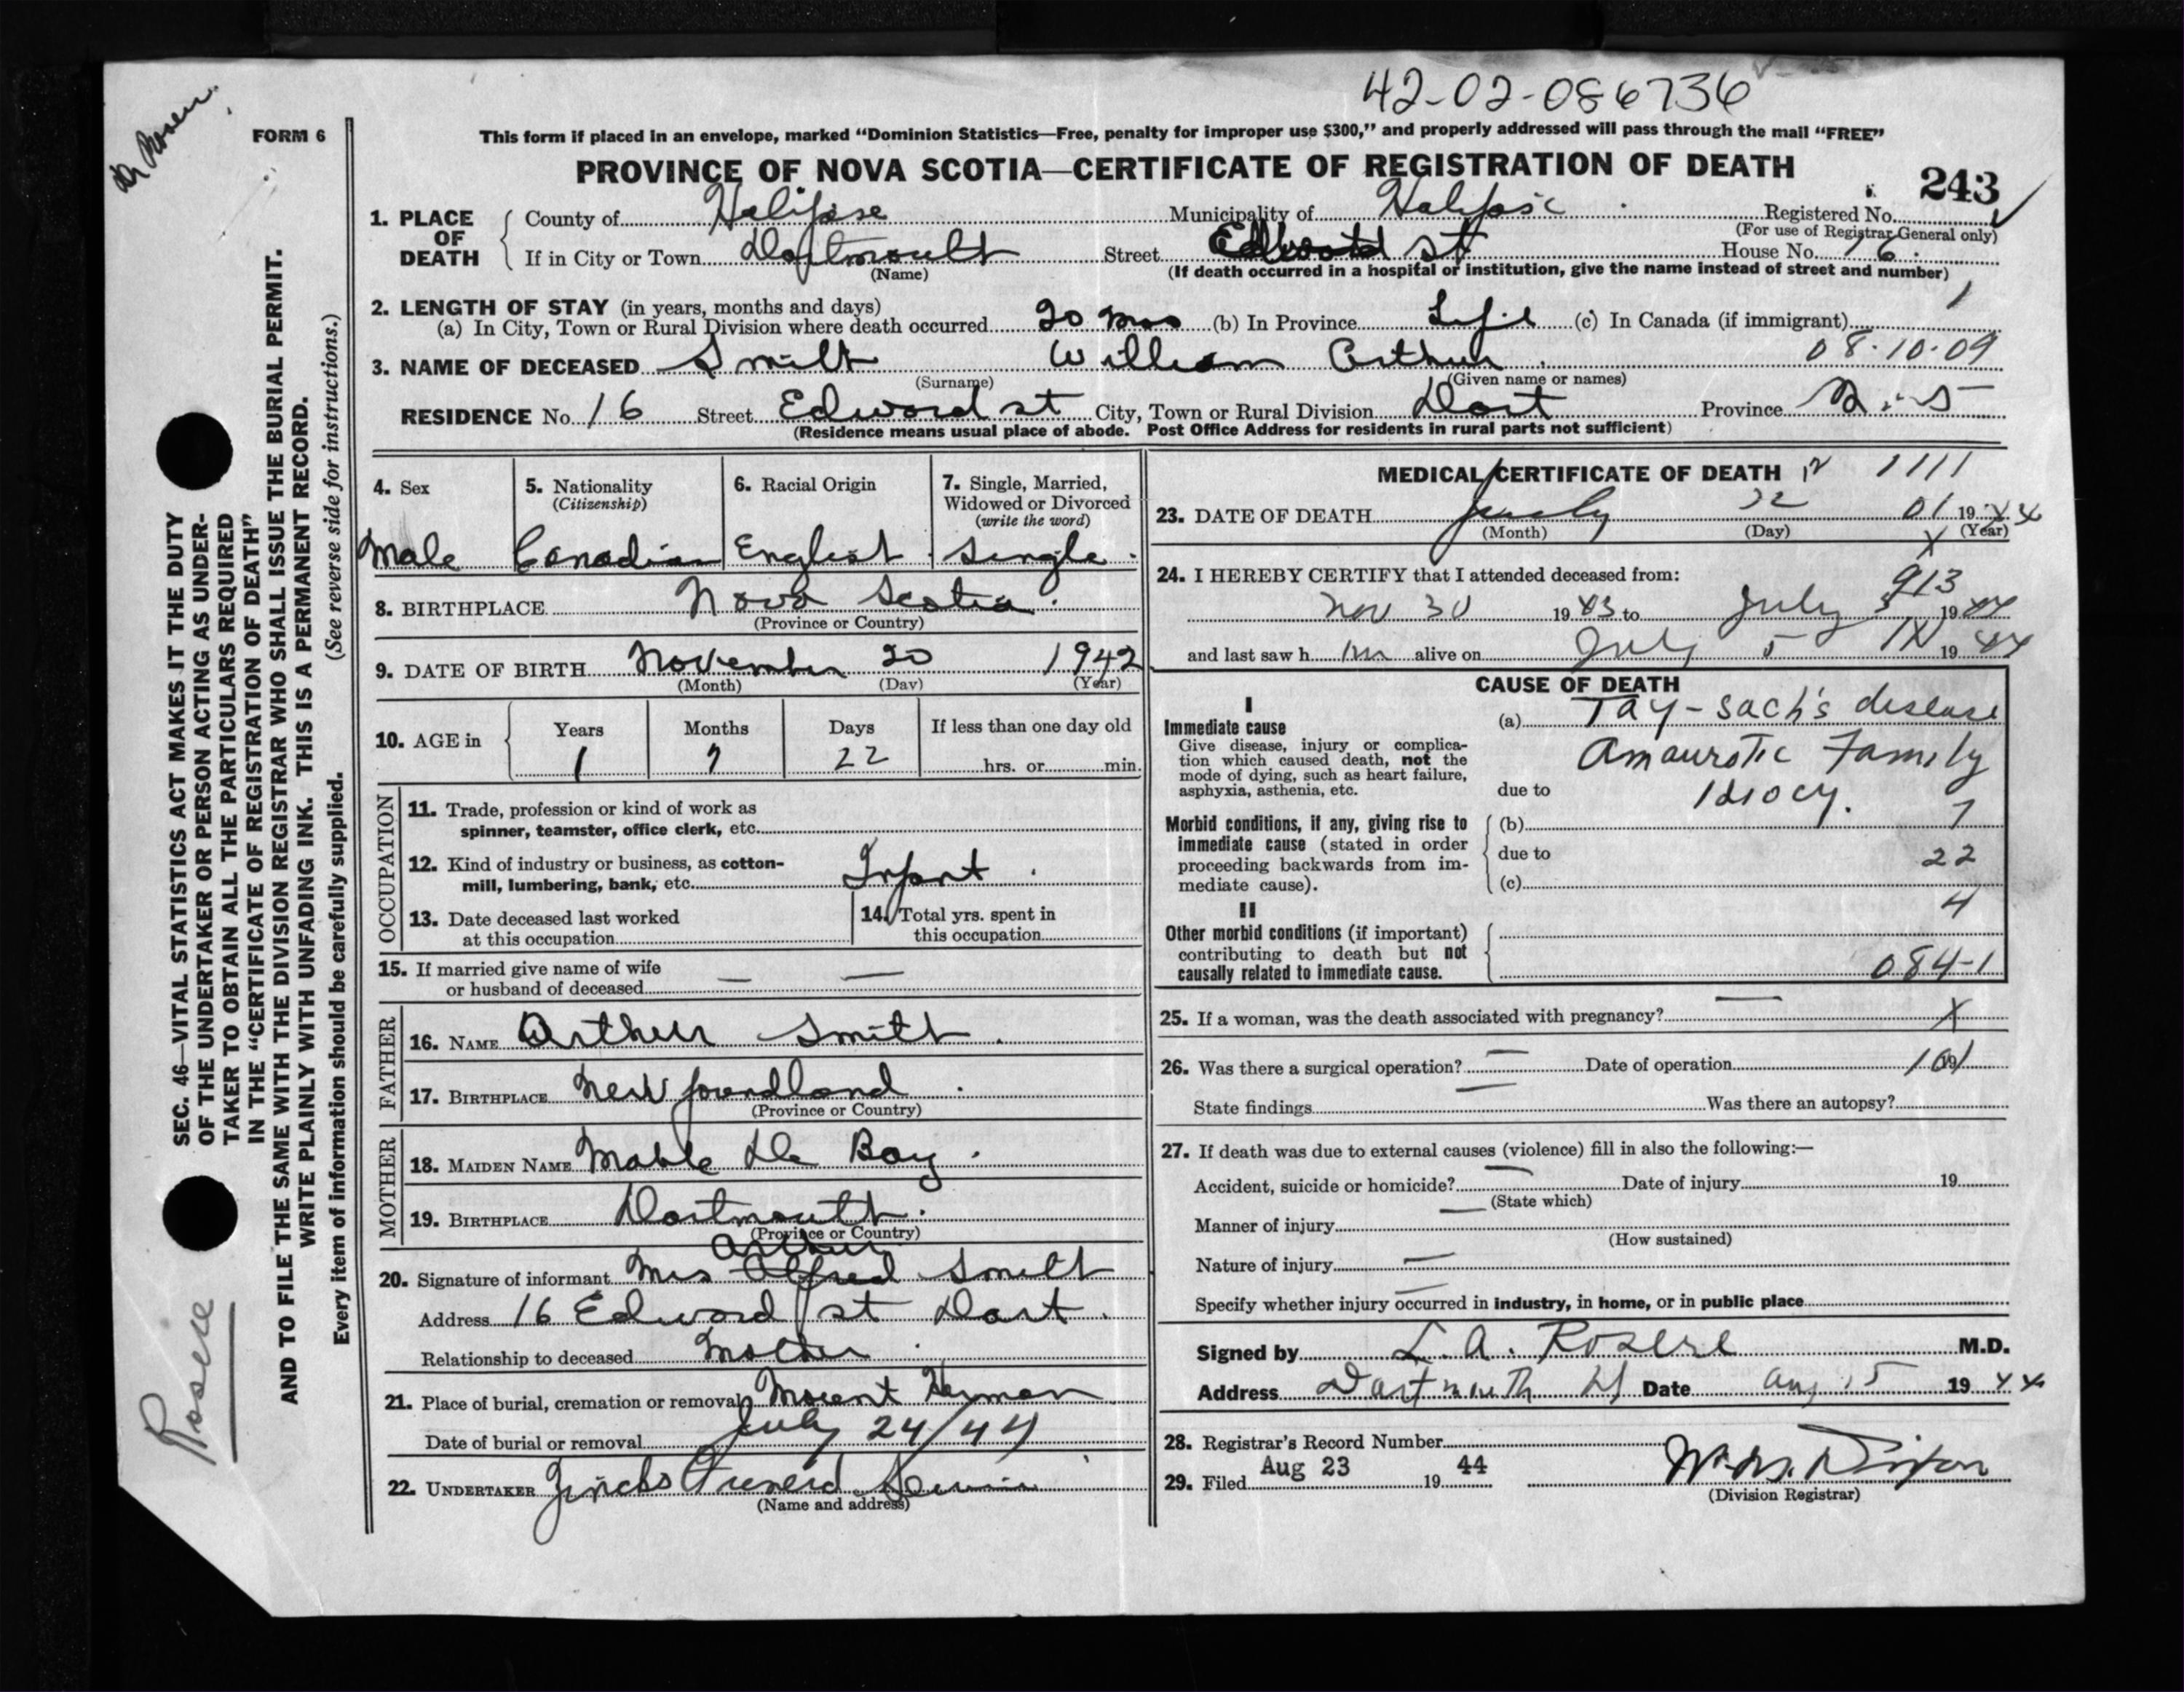 42-02-086736
Dr Rosen
FORM 6
This form if placed in an envelope, marked “Dominion Statistics—Free, penalty for improper use $300,” and properly addressed will pass through the mail “FREE”
PROVINCE OF NOVA SCOTIA—CERTIFICATE OF REGISTRATION OF DEATH
243
1. PLACE OF DEATH
County of Halifax Municipality of Halifax Registered No.
(For use of Registrar General only)
If in City or Town Dartmouth Street Edward st House No. 16
(Name) (If death occurred in a hospital or institution, give the name instead of street and number)
2. LENGTH OF STAY (in years, months and days) 1
(a) In City, Town or Rural Division where death occurred 20 mos (b) In Province Life (c) In Canada (if immigrant)
08.10.09
3. NAME OF DECEASED Smith William Arthur
(Surname) (Given name or names)
RESIDENCE No. 16 Street Edward st City, Town or Rural Division Dart Province N.S
(Residence means usual place of abode. Post Office Address for residents in rural parts not sufficient)
4. Sex
Male
5. Nationality
(Citizenship)
Canadian
6. Racial Origin
English
7. Single, Married,
Widowed or Divorced
(write the word)
Single
8. BIRTHPLACE Nova Scotia
(Province or Country)
9. DATE OF BIRTH November 20 1942
(Month) (Day) (Year)
10. AGE in
Years Months Days If less than one day old
1 7 22 hrs. or min.
OCCUPATION
11. Trade, profession or kind of work as
spinner, teamster, office clerk, etc.
12. Kind of industry or business, as cotton-
mill, lumbering, bank, etc. Infant
13. Date deceased last worked
at this occupation
14. Total yrs. spent in
this occupation
15. If married give name of wife
or husband of deceased — —
FATHER
16. NAME Arthur Smith
17. BIRTHPLACE New foundland
(Province or Country)
MOTHER
18. MAIDEN NAME Mable De Bay
19. BIRTHPLACE Dartmouth
(Province or Country)
Arthur
20. Signature of informant Mrs Alfred Smith
Address 16 Edward st Dart
Relationship to deceased Mother
21. Place of burial, cremation or removal Mount Herman
Date of burial or removal July 24/44
22. UNDERTAKER Zincks Funeral Service
(Name and address)
MEDICAL CERTIFICATE OF DEATH 12 1111
23. DATE OF DEATH July 22 01 19 44
(Month) (Day) (Year)
X
24. I HEREBY CERTIFY that I attended deceased from: 913
Nov 30 19 43 to July 5 19 44
and last saw h im alive on July 5 1X 19 44
CAUSE OF DEATH
I
Immediate cause
Give disease, injury or complica-
tion which caused death, not the
mode of dying, such as heart failure,
asphyxia, asthenia, etc.
(a) Tay-Sach's disease
Amaurotic Family
due to Idiocy.
Morbid conditions, if any, giving rise to
immediate cause (stated in order
proceeding backwards from im-
mediate cause).
(b) 7
due to 22
(c)
4
II
Other morbid conditions (if important)
contributing to death but not
causally related to immediate cause.
084-1
25. If a woman, was the death associated with pregnancy? — X
26. Was there a surgical operation? — Date of operation
State findings — Was there an autopsy?
27. If death was due to external causes (violence) fill in also the following:—
Accident, suicide or homicide? — Date of injury 19
(State which)
Manner of injury —
(How sustained)
Nature of injury —
Specify whether injury occurred in industry, in home, or in public place —
Signed by L. A. Rosere M.D.
Address Dartmouth Date Aug 15 19 44
28. Registrar's Record Number
29. Filed Aug 23 19 44
(Division Registrar)
SEC. 46—VITAL STATISTICS ACT MAKES IT THE DUTY
OF THE UNDERTAKER OR PERSON ACTING AS UNDER-
TAKER TO OBTAIN ALL THE PARTICULARS REQUIRED
IN THE “CERTIFICATE OF REGISTRATION OF DEATH”
AND TO FILE THE SAME WITH THE DIVISION REGISTRAR WHO SHALL ISSUE THE BURIAL PERMIT.
WRITE PLAINLY WITH UNFADING INK. THIS IS A PERMANENT RECORD.
Every item of information should be carefully supplied. (See reverse side for instructions.)
Roserie